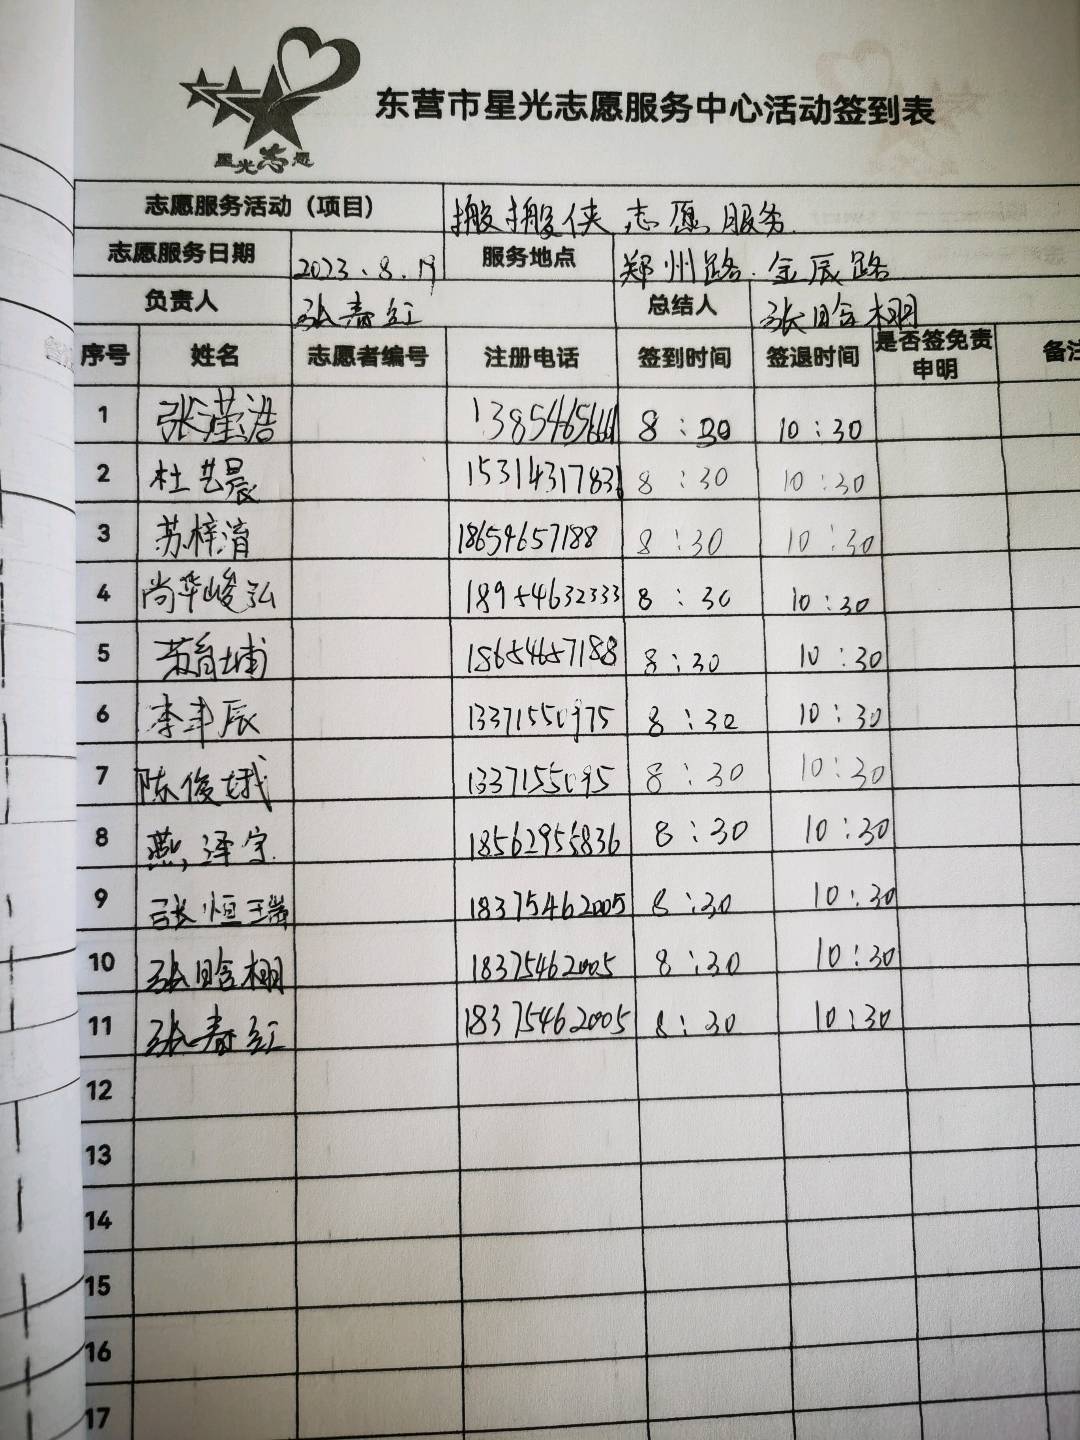 星光志愿
东营市星光志愿服务中心活动签到表
志愿服务活动（项目） 搬搬侠志愿服务
志愿服务日期 2023.8.19 服务地点 郑州路.金辰路
负责人 张春红 总结人 张晗棚
序号 姓名 志愿者编号 注册电话 签到时间 签退时间 是否签免责申明 备注
1 张瀅浩 8:30 10:30
2 杜艺晨 8:30 10:30
3 苏梓淯 18654657188 8:30 10:30
4 尚华峻弘 18954632333 8:30 10:30
5 18654657188 8:30 10:30
6 李聿辰 13371550975 8:30 10:30
7 陈俊娥 8:30 10:30
8 燕泽宇 18562955836 8:30 10:30
9 张恒瑞 18375462005 8:30 10:30
10 张晗棚 18375462005 8:30 10:30
11 张春红 18375462005 8:30 10:30
12
13
14
15
16
17